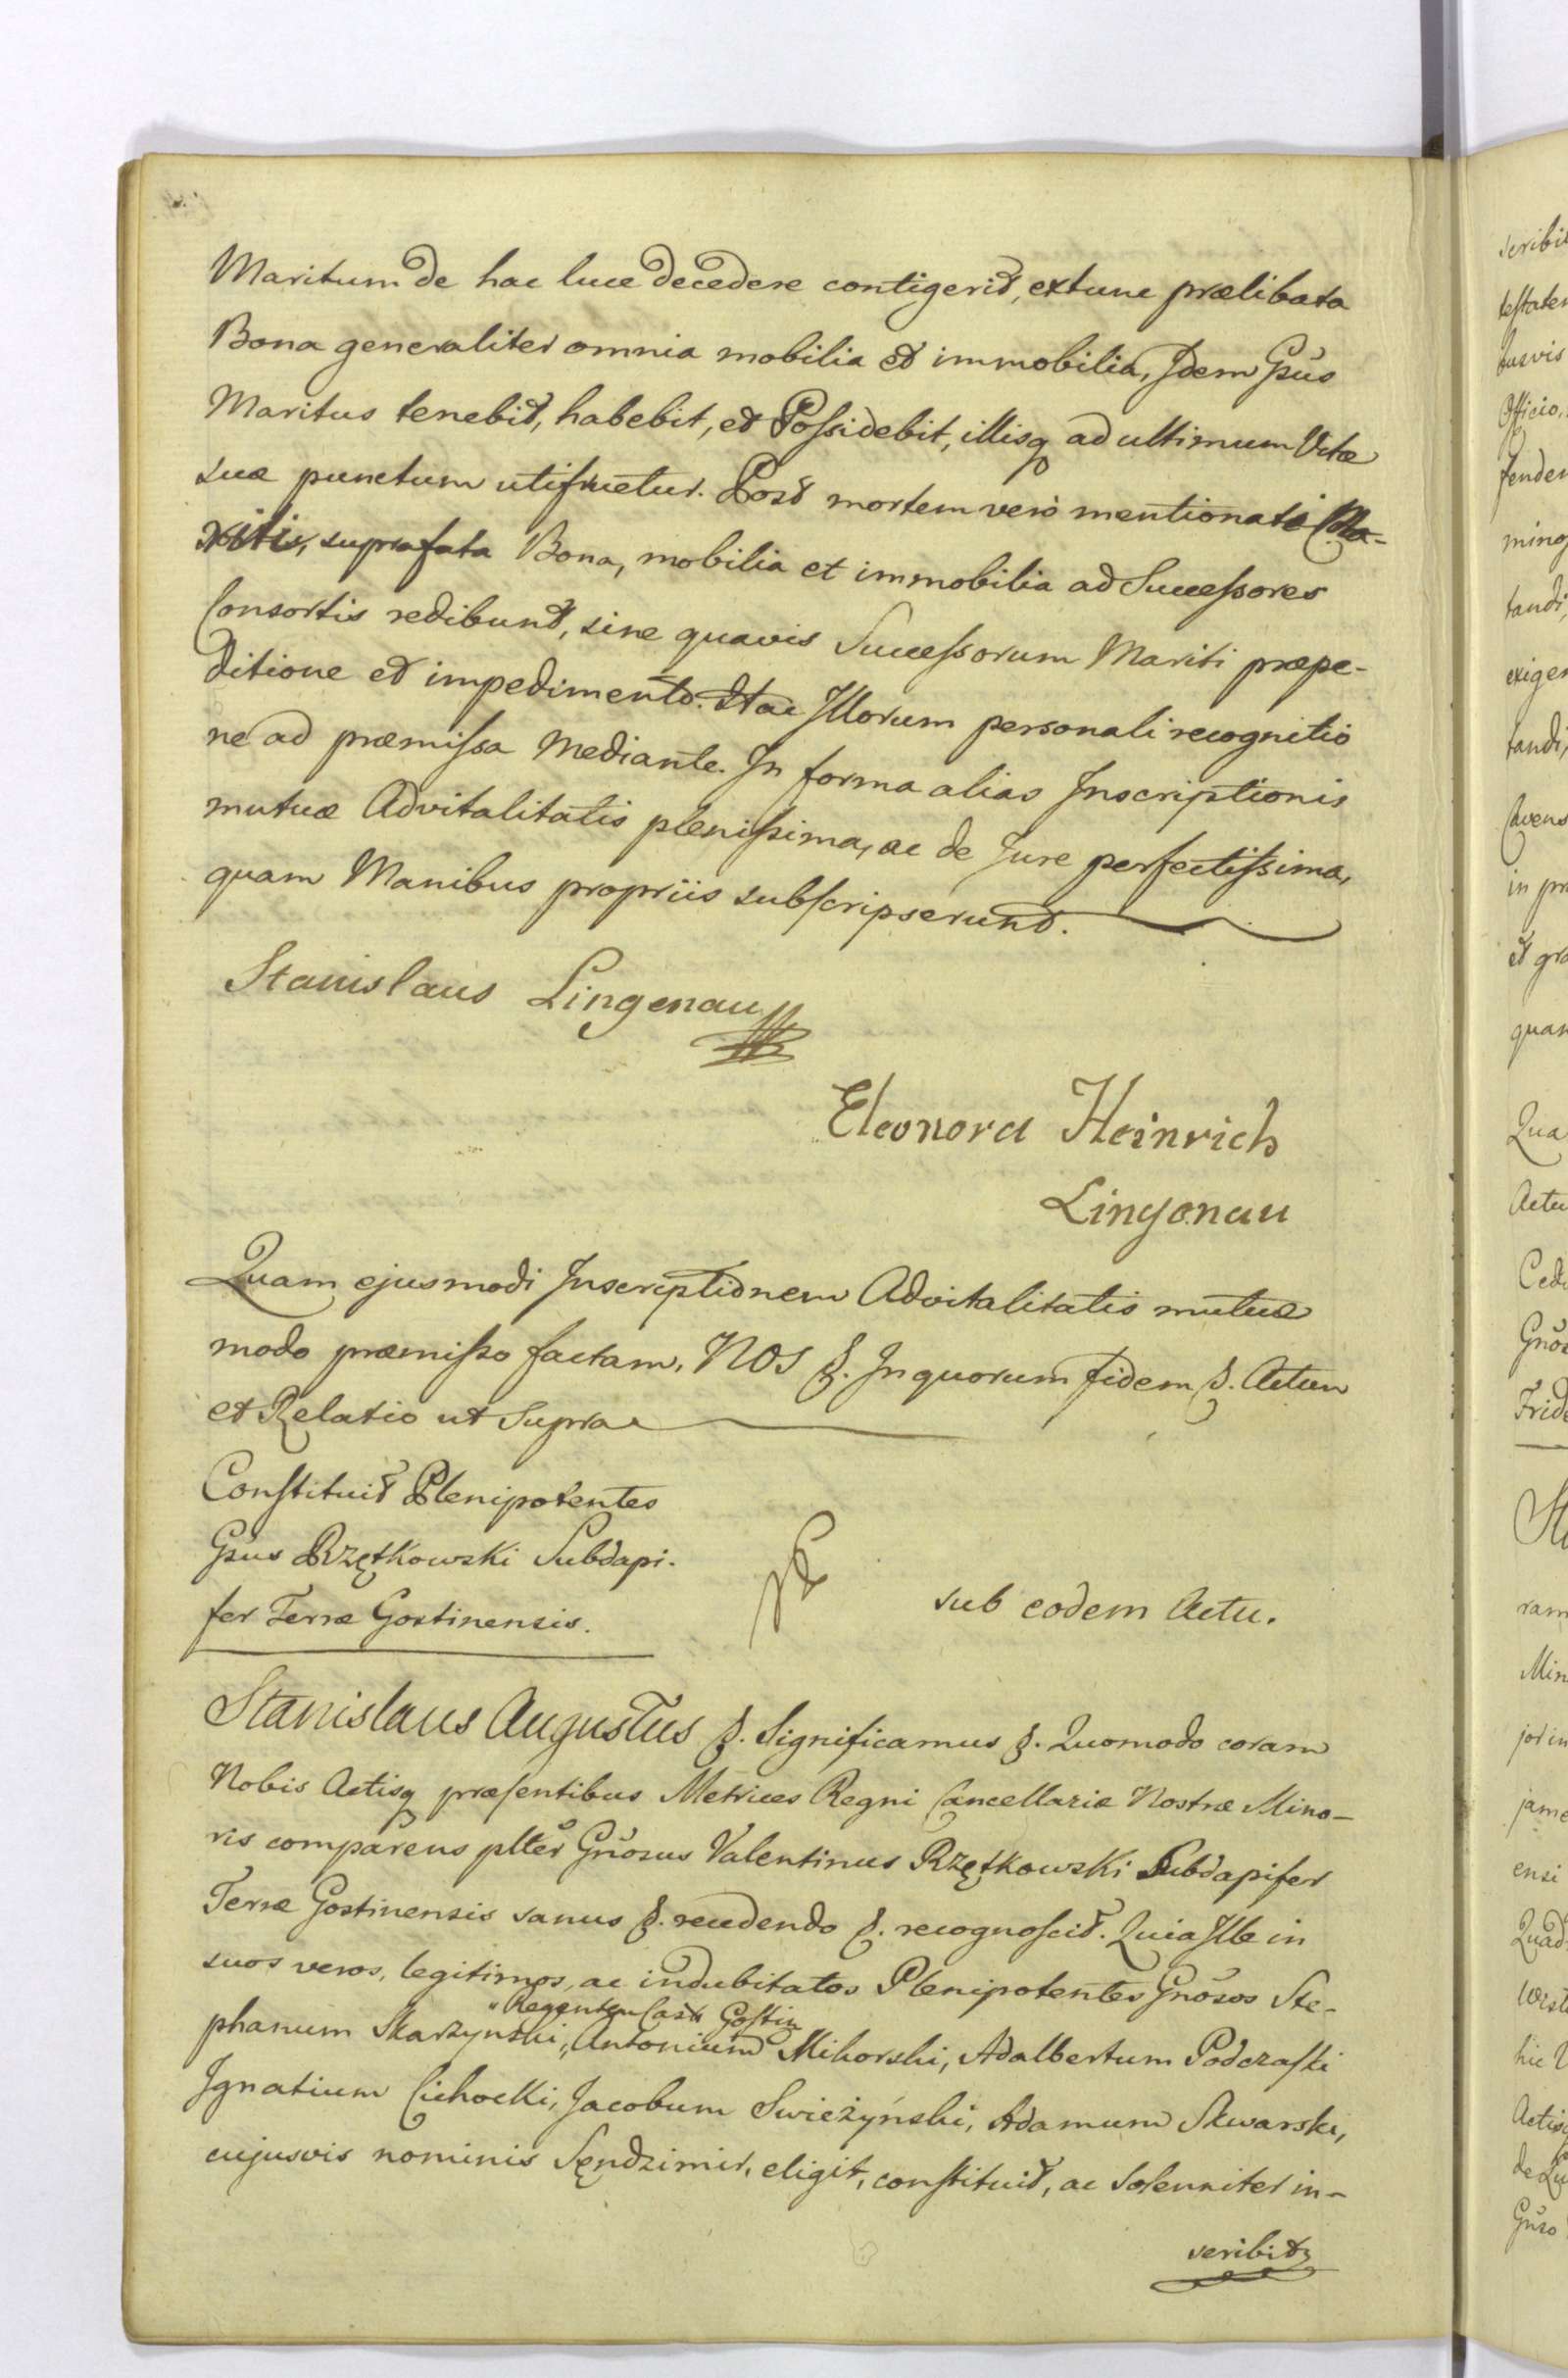 Maritum de hac luce decedere contigerit, extunc prælibata
Bona generaliter omnia mobilia et immobilia, Idem Gsus
Maritus tenebit, habebit, et Possidebit, illisq ad ultimum Vitæ
suæ punctum utifruetur. Post mortem vero mentionati Ma-
riti, suprafata Bona, mobilia et immobilia ad Successores
Consortis redibunt, sine quavis Successorum Mariti præpe-
ditione et impedimento. Hac Illorum personali recognitio
ne ad præmissa mediante. In forma alias Inscriptionis
mutuæ Advitalitatis plenissima, ac de Jure perfectissima,
quam Manibus propriis subscripserunt.
Stanislaus Lingenau
Eleonora Heinrich
Lingenau
Quam ejusmodi Inscriptionem Advitalitatis mutuæ
modo præmisso factam, NOS &. In quorum fidem &. Actum
et Relatio ut Supra
Constituit Plenipotentes
Gsus Rzętkowski Subdapi-
fer Terræ Gostinensis.
sub eodem Actu.
Stanislaus Augustus &. Significamus &. Quomodo coram
Nobis Actisq præsentibus Metrices Regni Cancellariæ Nostræ Mino-
ris comparens plter Gnosus Valentinus Rzętkowski Subdapifer
Terræ Gostinensis sanus &. recedendo &. recognoscit. Quia Ille in
suos veros, legitimos, ac indubitatos Plenipotentes Gnosos Ste-
" Regentem Castr Gostin
phanum Skarzynski, " Antonium Mikorski, Adalbertum Podczaski
Ignatium Cichocki, Jacobum Swieżyński, Adamum Skwarski,
cujusvis nominis Sędzimir, eligit, constituit, ac solenniter in-
scribit